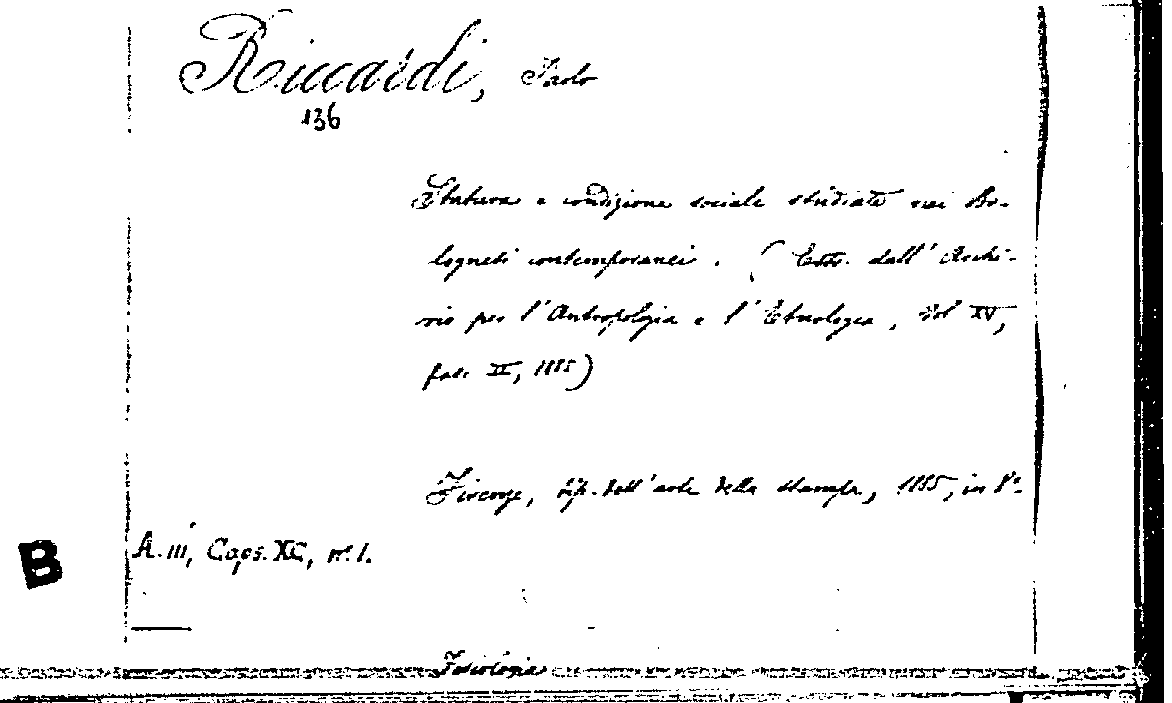 Riccardi, Paolo
136
Statura e condizione sociale studiate nei Bo-
lognesi contemporanei. (Estr. dall'Archi-
vio per l'Antropologia e l'Etnologia, Vol XV,
fasc II, 1885)
Firenze, tip. dell'arte della stampa, 1885, in 8°.
B
A. III, Caps. XC, n°. 1.
Fisiologia